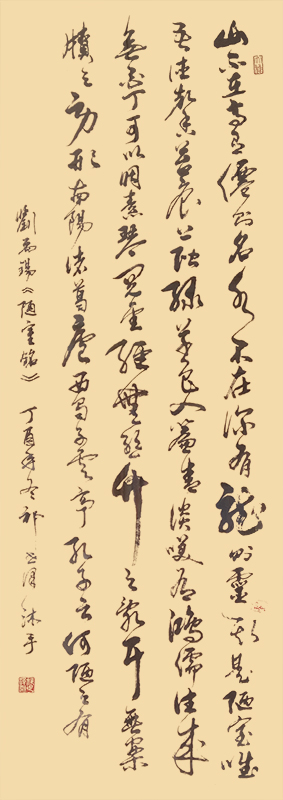 山不在高有僊則名水不在深有龍則靈斯是陋室唯
吾德馨苔痕上階綠草色入簾青談笑有鴻儒往來
無白丁可以調素琴閱金經無絲竹之亂耳無案
牘之勞形南陽諸葛廬西蜀子雲亭孔子云何陋之有
劉禹錫《陋室銘》 丁酉年冬 沐手